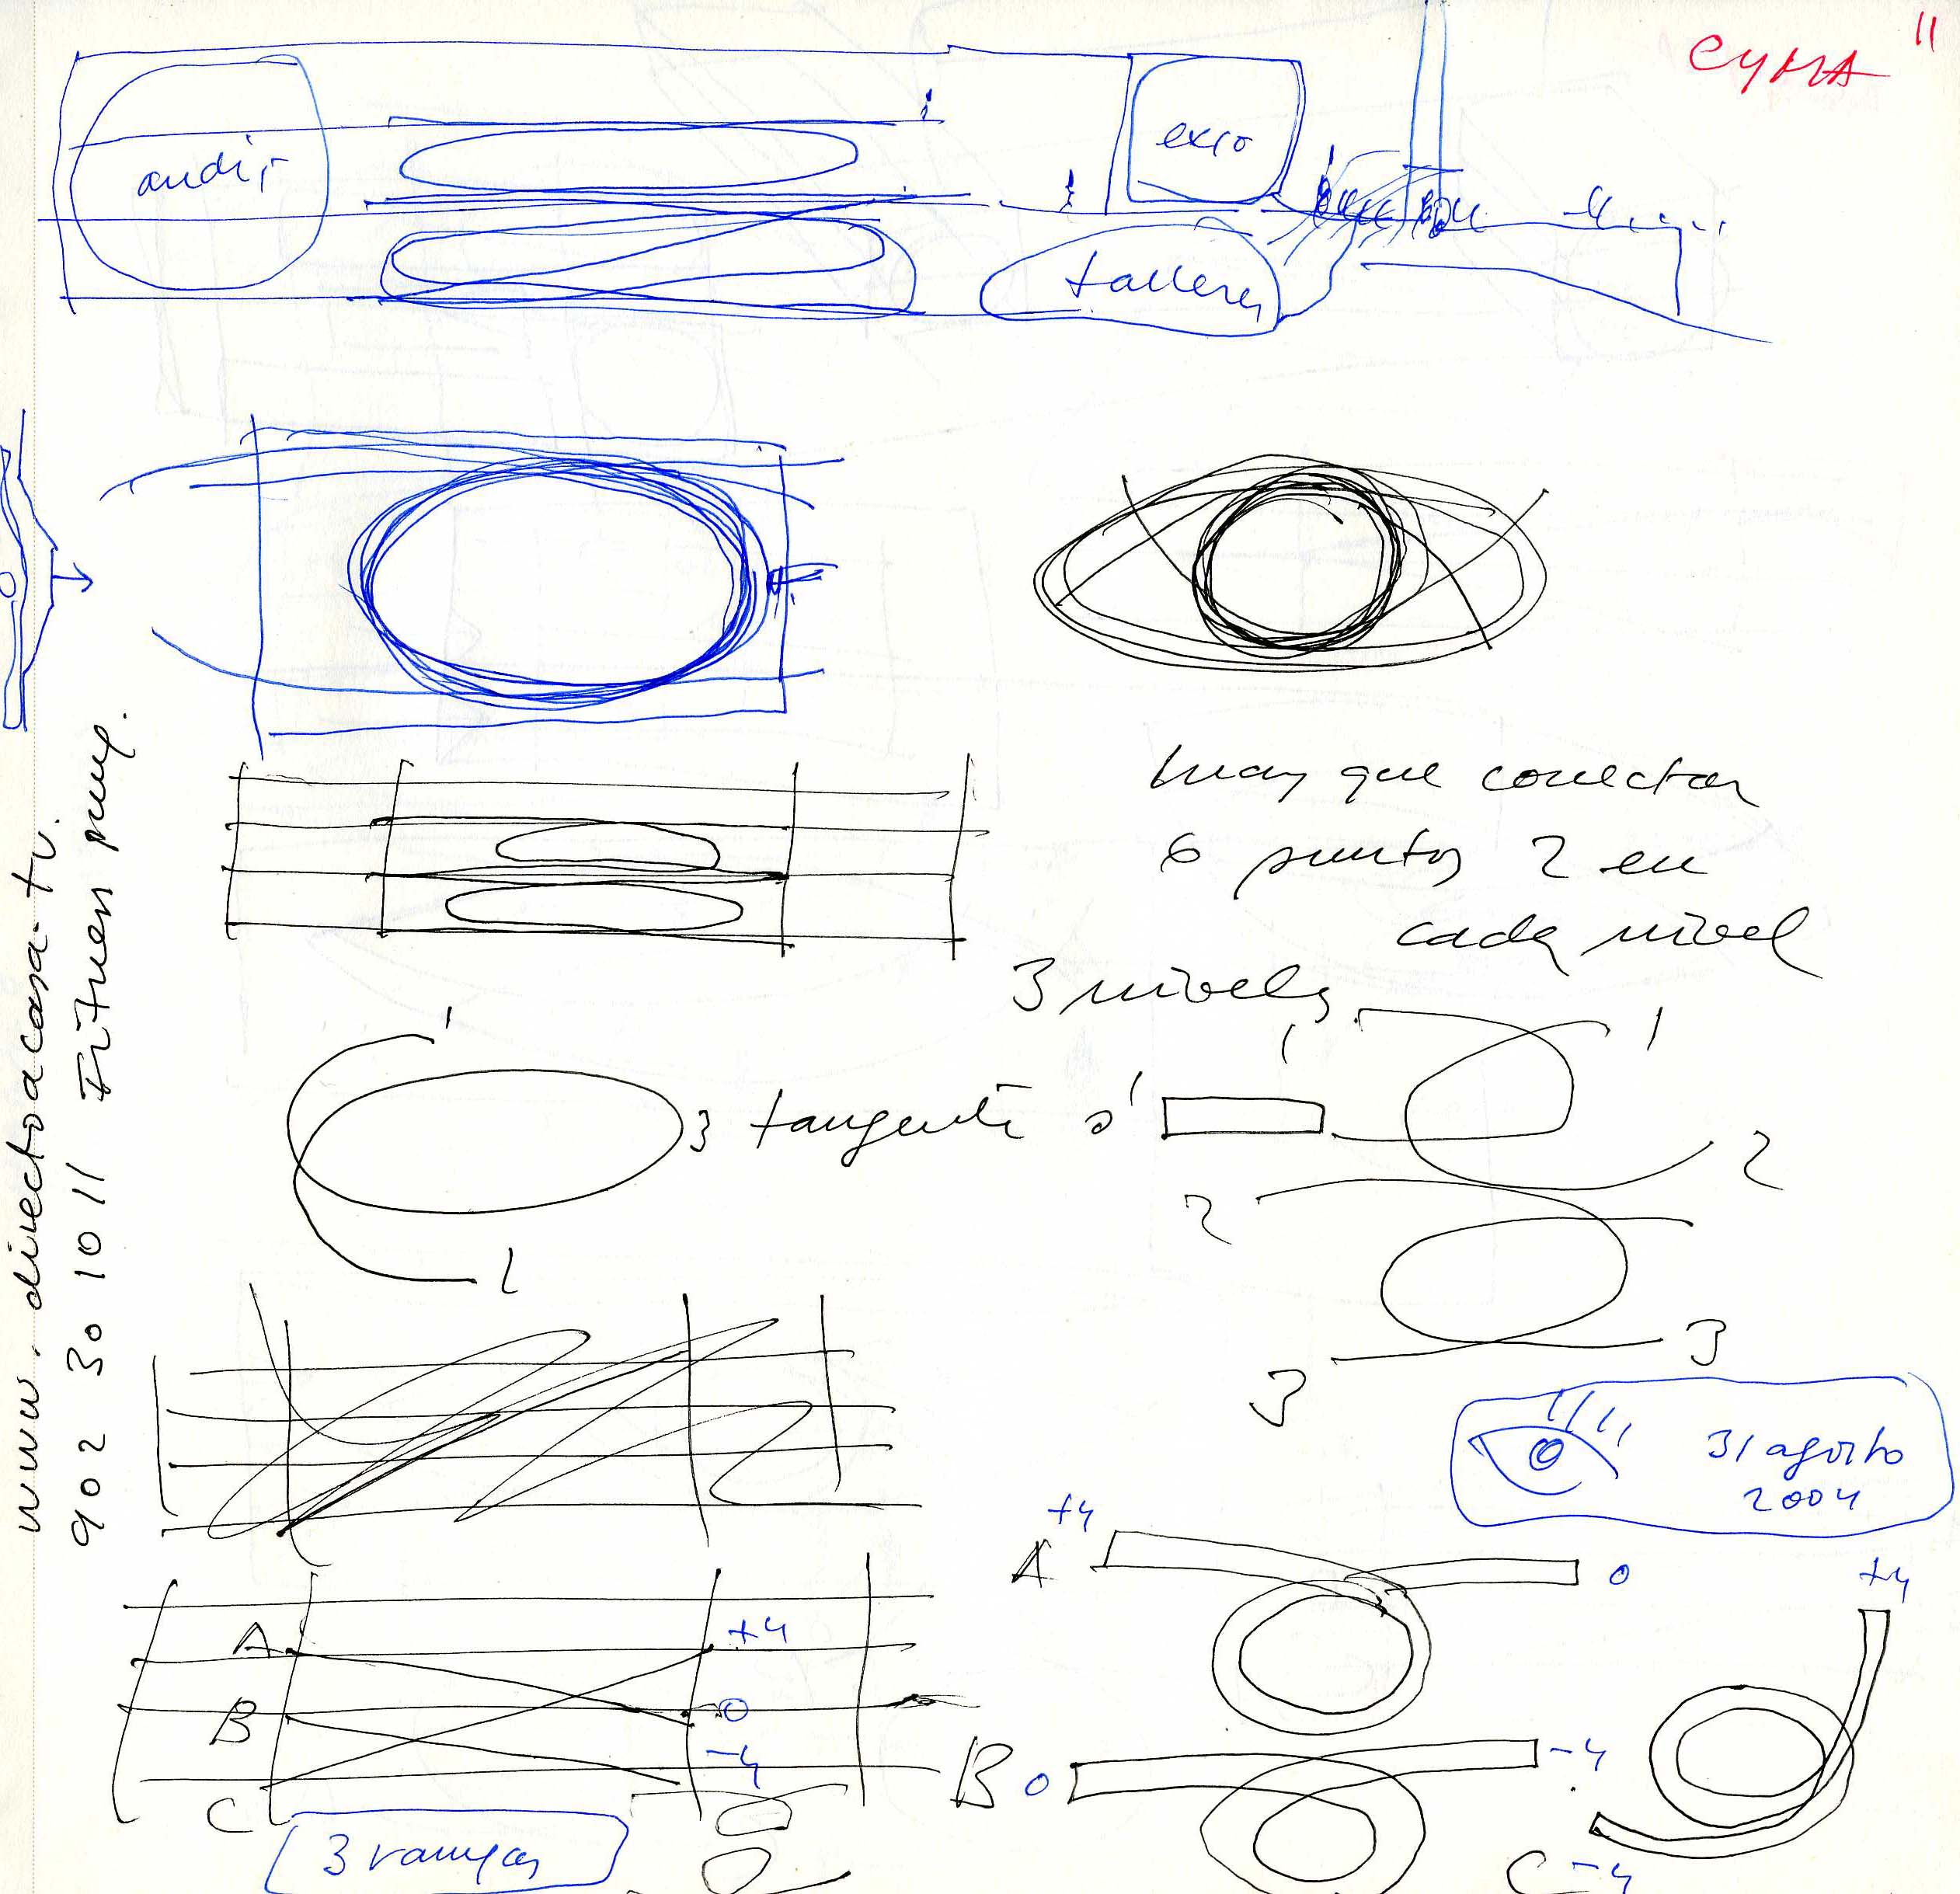 11
CYMA
audit
expo
talleres
hay que conectar
6 puntos 2 en
cada nivel
3 niveles
1
1
1
3 tangente o
1
2
2
2
3
3
31 agosto
2004
+4
A
0
+4
A
+4
B
0
-4
B
0
-4
C
3 rampas
C -4
www.directoacasa.tv.
902 30 10 11 Fitness pump.